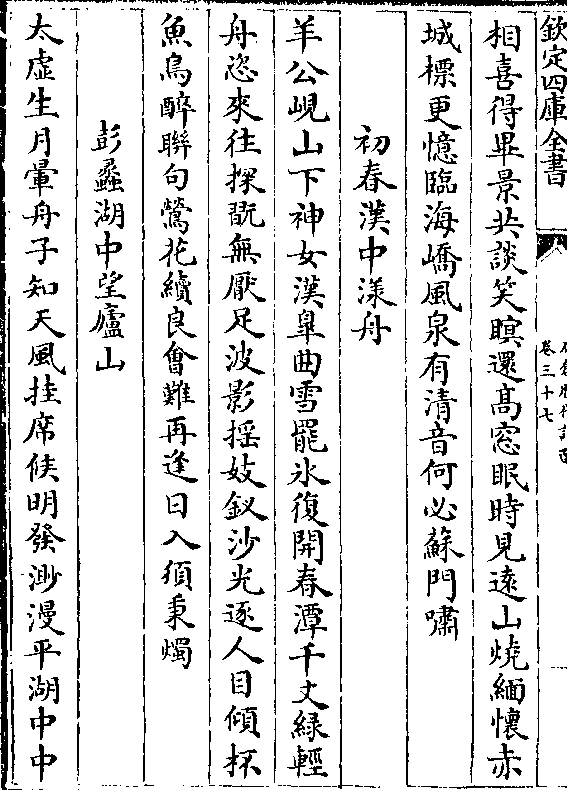 欽定四庫全書
卷三十七
相喜得畢景共談笑暝還髙窓眠時見逺山燒緬懷赤
城標更憶臨海嶠風泉有清音何必蘇門嘯
初春漢中漾舟
羊公峴山下神女漢臯曲雪罷氷復開春潭千丈緑輕
舟恣來往探翫無厭足波影揺妓釵沙光逐人目傾杯
魚鳥醉聨句鶯花續良會難再逢日入須秉燭
彭蠡湖中望廬山
太虚生月暈舟子知天風挂席候明發渺漫平湖中中